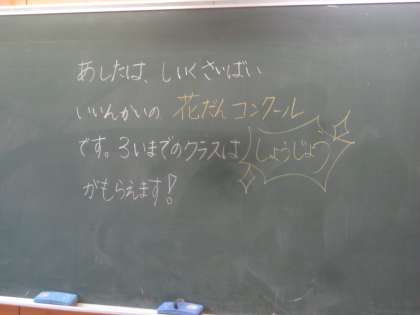 あしたは、しいくさいばい
いいんかいの 花だんコンクール
です。3いまでのクラスは しょうじょう
がもらえます!